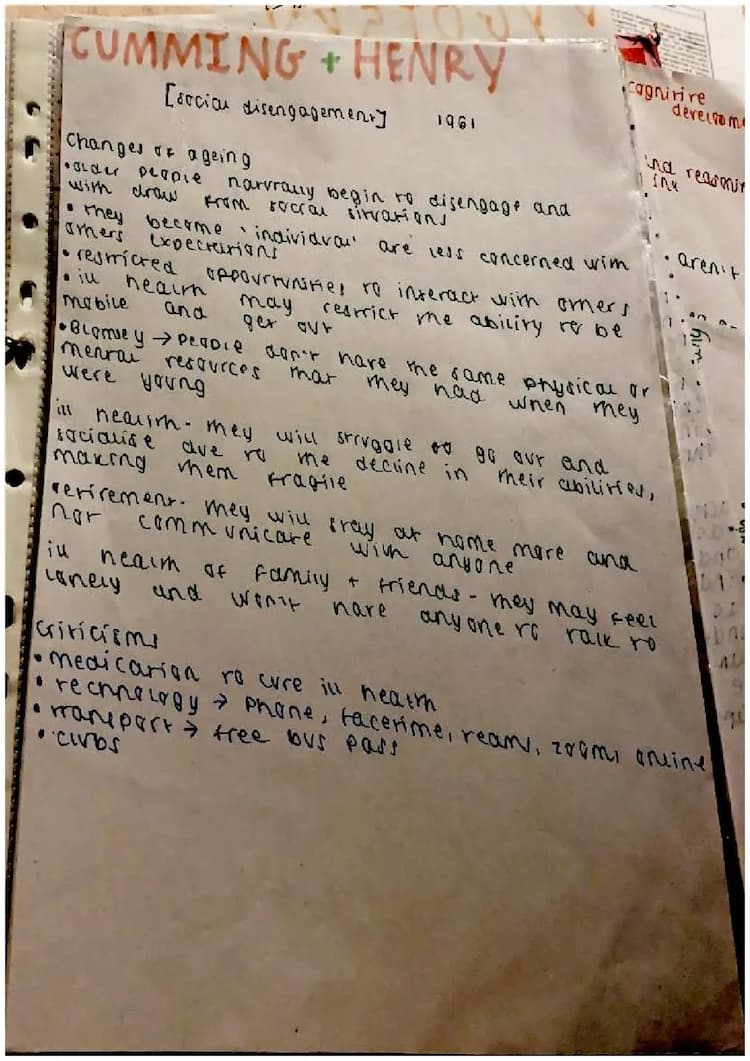 CUMMING + HENRY
[social disengagement] 1961
Changes of ageing
• older people naturally begin to disengage and
with draw from social situations
• they become 'individual' are less concerned with
others expectations
• restricted opportunities to interact with others
• ill health may restrict the ability to be
mobile and get out
• Bromley → people don't have the same physical or
mental resources that they had when they
were young
ill health - they will struggle to go out and
socialise due to the decline in their abilities,
making them fragile
retirement - they will stay at home more and
not communicate with anyone
ill health of family + friends - they may feel
lonely and won't have anyone to talk to
criticisms
• medication to cure ill health
• technology → phone, facetime, teams, zoom, online
• transport → free bus pass
• clubs
cognitive
development
and reasoning
• aren't